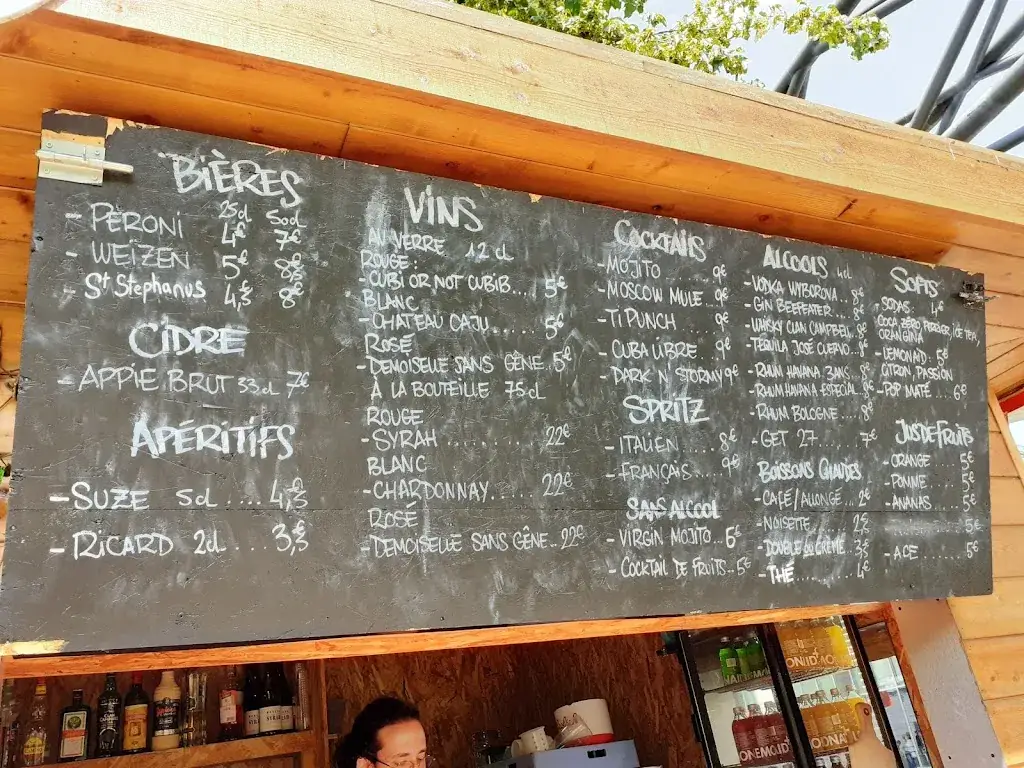 BIÈRES
25cl 50cl
- PERONI 4€ 7€
- WEIZEN 5€ 8€
- St Stephanus 4,5 8€
CIDRE
- APPIE BRUT 33cl 7€
APÉRITIFS
- SUZE 5cl .... 4,5
- RICARD 2cl .... 3,5
VINS
AU VERRE 12cl
ROUGE:
- CUBI OR NOT CUBIB... 5€
BLANC
- CHATEAU CAJU...... 5€
ROSÉ
- DEMOISELLE SANS GÊNE. 5€
À LA BOUTEILLE 75cl
ROUGE
- SYRAH ......... 22€
BLANC
- CHARDONNAY...... 22€
ROSÉ
- DEMOISELLE SANS GÊNE.. 22€
COCKTAILS
- MOJITO ... 9€
- MOSCOW MULE.. 9€
- TI PUNCH ... 9€
- CUBA LIBRE .. 9€
- DARK N' STORMY 9€
SPRITZ
- ITALIEN .... 8€
- FRANÇAIS... 9€
SANS ALCOOL
- VIRGIN MOJITO.. 6€
- COCKTAIL DE FRUITS.. 5€
ALCOOLS 4cl
- VODKA WYBOROVA .. 8€
- GIN BEEFEATER... 8€
- WHISKY CLAN CAMPBELL. 8€
- TEQUILA JOSÉ CUERVO.. 8€
- RHUM HAVANA 3ANS.. 8€
- RHUM HAVANA ESPECIAL. 8€
- RHUM BOLOGNE ... 8€
- GET 27 ..... 7€
BOISSONS CHAUDES
- CAFÉ/ALLONGÉ.. 2€
- NOISETTE
- DOUBLE OU CRÈME..
- THÉ......... 4€
SOFTS
- SODAS. 4€
COCA, ZÉRO, PERRIER, ICE TEA,
ORANGINA
- LEMONAID. 5€
CITRON, PASSION
- POP MATÉ .... 6€
JUS DE FRUITS
- ORANGE .... 5€
- POMME .... 5€
- ANANAS .... 5€
5€
- ACE ........ 5€